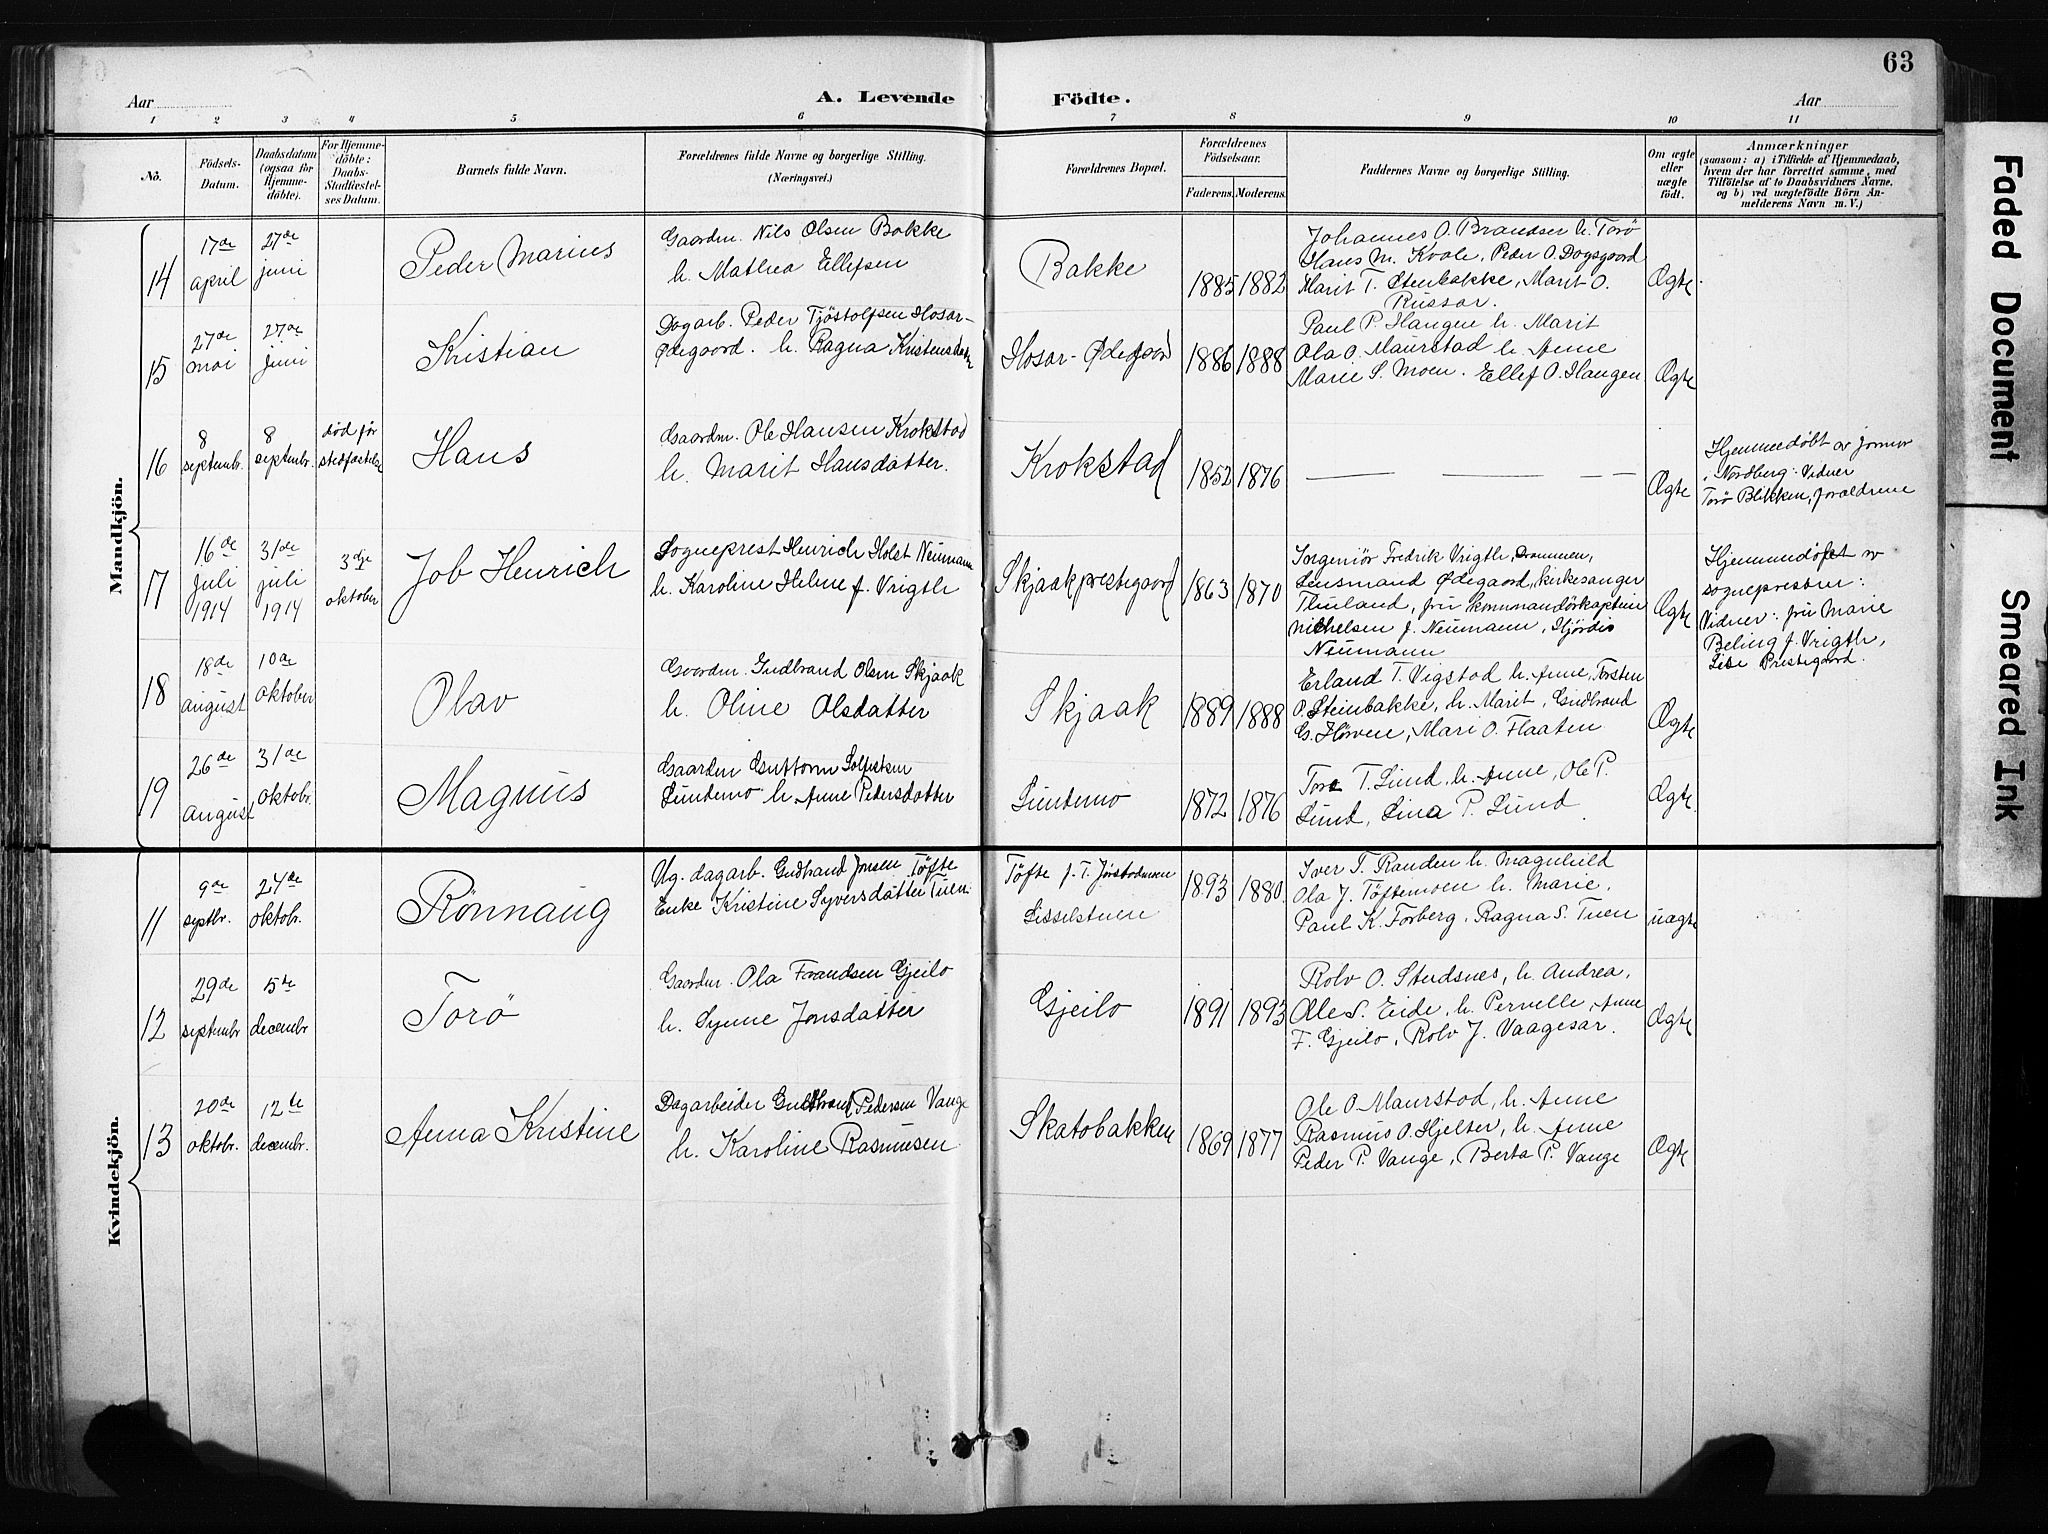 63
Aar
A. Levende Födte.
Aar
1 2 3 4 5 6 7 8 9 10 11
No.
Födsels-
Datum.
Daabsdatum
(ogsaa för
Hjemme-
döbte).
For Hjemme-
döbte:
Daabs-
Stadfæstel-
ses Datum.
Barnets fulde Navn.
Forældrenes fulde Navne og borgerlige Stilling.
(Næringsvei.)
Forældrenes Bopæl.
Forældrenes
Födselsaar.
Faderens.
Moderens.
Faddernes Navne og borgerlige Stilling.
Om ægte
eller
uægte
födt.
Anmærkninger
(saasom: a) i Tilfælde af Hjemmedaab,
hvem der har forrettet samme, med
Tilföielse af to Daabsvidners Navne,
og b) ved uægtefödte Börn An-
melderens Navn m. V.)
Mandkjön.
14
17de
april
27de
juni
Peder Marius
Gaardm. Nils Olsen Bakke
h. Mathea Ellefsen
Bakke
1885 1882
Johannes O. Brandser h. Torö
Hans M. Kvale, Peder O. Dagsgaard
Marit T. Stenbakke, Marit O.
Russar.
Ægte
15
27de
mai
27de
juni
Kristian
Dagarb. Peder Tjöstolfsen Hosar-
Ødegaard. h. Ragna Kristensdatr
Hosar-Ødegaard
1886 1888
Paul P. Haugen h. Marit
Ola O. Maurstad h. Anne
Marie S. Moen. Ellef O. Haugen.
Ægte
16
8
septembr.
8
septembr.
død før
stadfæstelse
Hans
Gaardm. Ole Hansen Krokstad
h. Marit Hansdatter.
Krokstad
1852 1876
Ægte
Hjemmedøbt av jormor
i Nordberg: Vidner
Torö Blikken, forældrene
17
16de
juli
1914
31de
juli
1914
3dje
oktober
Job Henrich
Sogneprest Henrich Holst Neumann
h. Karoline Helene f. Vrigth
Skjaakprestegaard
1863 1870
Ingeniör Fredrik Vrigth, Drammen,
Lensmand Ødegaard, kirkesanger
Thuland, fru kommandörkaptein
Michelsen f. Neumann, Hjördis
Neumann
Ægte
Hjemmedøpt av
sognepresten:
Vidner: fru Marie
Beling f. Vrigth,
Lise Prestegaard.
18
18de
august
10de
oktober
Olav
Gaardm. Gudbrand Olsen Skjaak
h. Oline Olsdatter
Skjaak
1889 1888
Erland T. Vigstad h. Anne, Torsten
O. Steinbakke, h. Marit, Gudbrand
G. Horven, Mari O. Flaaten
Ægte
19
26de
august
31de
oktobr.
Magnus
Gaardm Guttorm Solfestsen
Lundemo h. Anne Pedersdatter
Lundemo
1872 1876
Tore T. Lund, h. Anne, Ole P.
Lund, Lina P. Lund
Ægte
Kvindekjön.
11
9de
septbr.
24de
oktobr.
Rönnaug
Ug. dagarb. Gudbrand Jonsen Töfte
Enke Kristine Syversdatter Tuen
Töfte f. T. Jörstadmoen
Lisselstuen
1893 1880
Iver T. Randen h. Magnhild
Ola J. Töftemoen h. Marie.
Paul K. Forberg, Ragna S. Tuen
uægte
12
29de
septembr
5te
decembr
Torö
Gaardm. Ola Frandsen Gjeilo
h. Synne Jonsdatter
Gjeilo
1891 1893
Rolv O. Studsnes, h. Andrea,
Ole S. Eide, h. Pernelle, Anne
F. Gjeilo, Rolv J. Vaagesar.
Ægte
13
20de
oktobr.
12te
decembr.
Anna Kristine
Dagarbeider Gudbrand Pedersen Vange
h. Karoline Rasmusen
Skatobakken
1869 1877
Ole O Maurstad, h. Anne
Rasmus O. Hjelter, h. Anne
Peder P. Vange, Berta P. Vange
Ægte
Faded Document
Smeared Ink